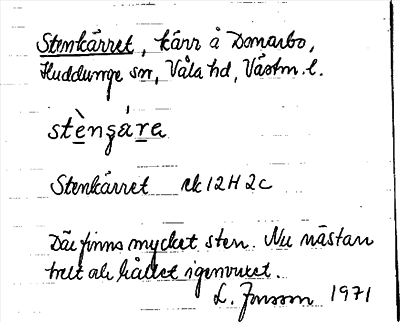 Stenkärret, kärr å Domarbo,
Huddunge sn, Våla hd, Västm. l.
stèngára
Stenkärret rk 12H 2c
Där finns mycket sten. Nu nästan
helt och hållet igenvuxet.
L. Jonsson 1971